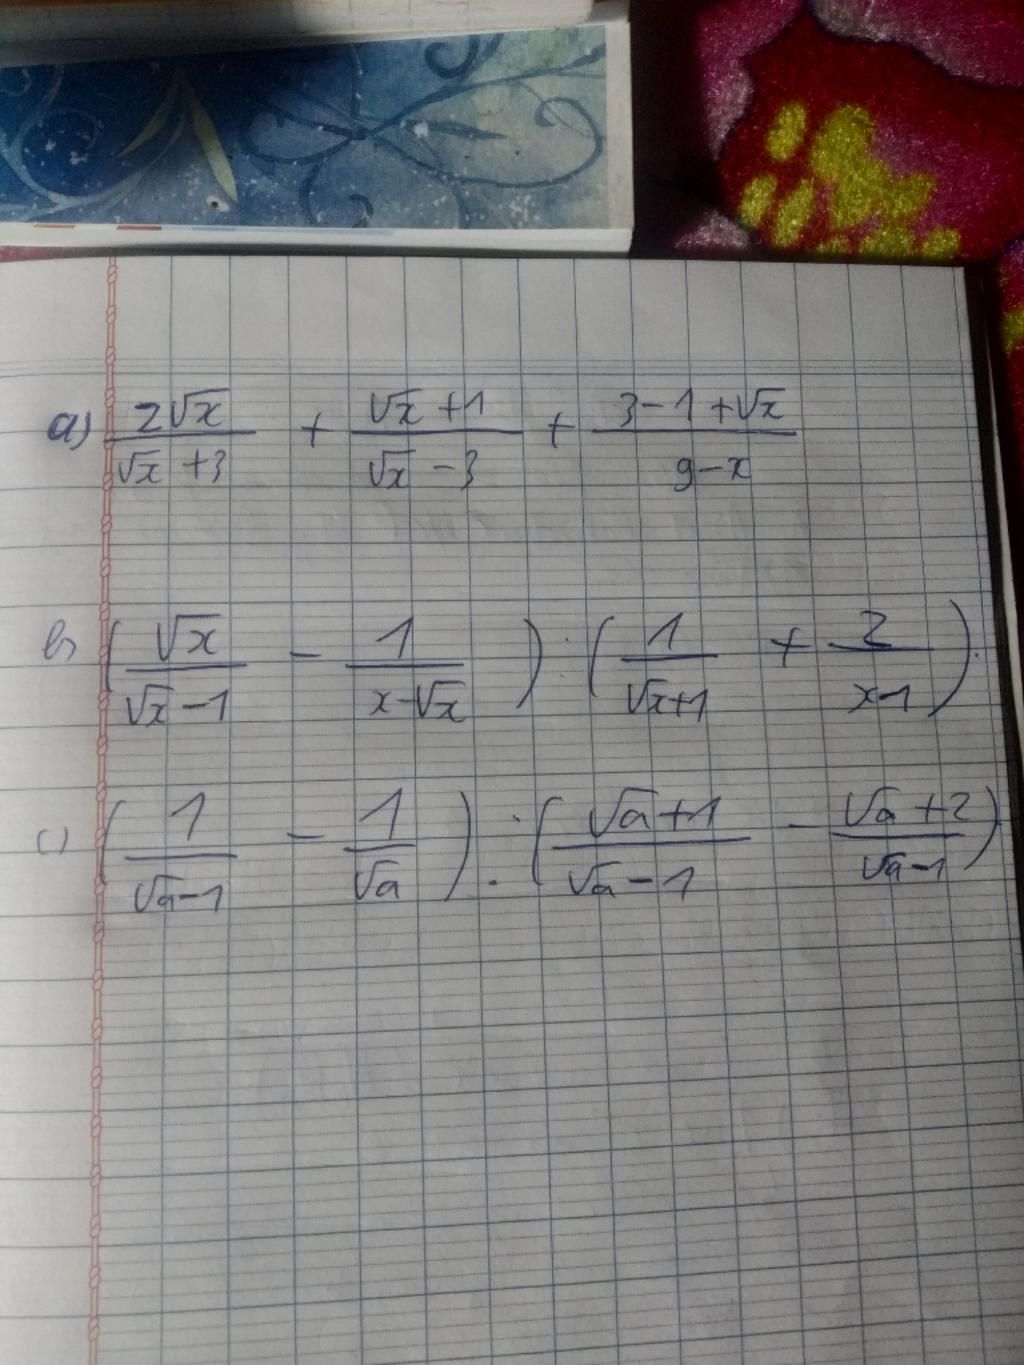 a) 2√x/(√x + 3) + (√x + 1)/(√x - 3) + (3 - 1 + √x)/(9 - x)
b) (√x/(√x - 1) - 1/(x - √x)) : (1/(√x + 1) + 2/(x - 1)).
c) (1/(√a - 1) - 1/√a) : ((√a + 1)/(√a - 1) - (√a + 2)/(√a - 1))